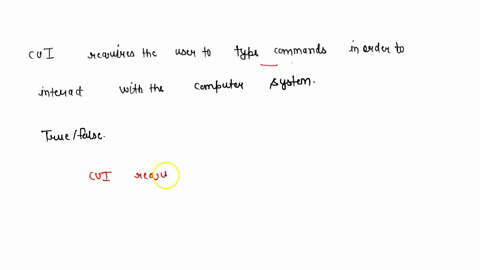 CUI requires the user to type commands in order to
interact with the computer system.
True/false.
CUI requ